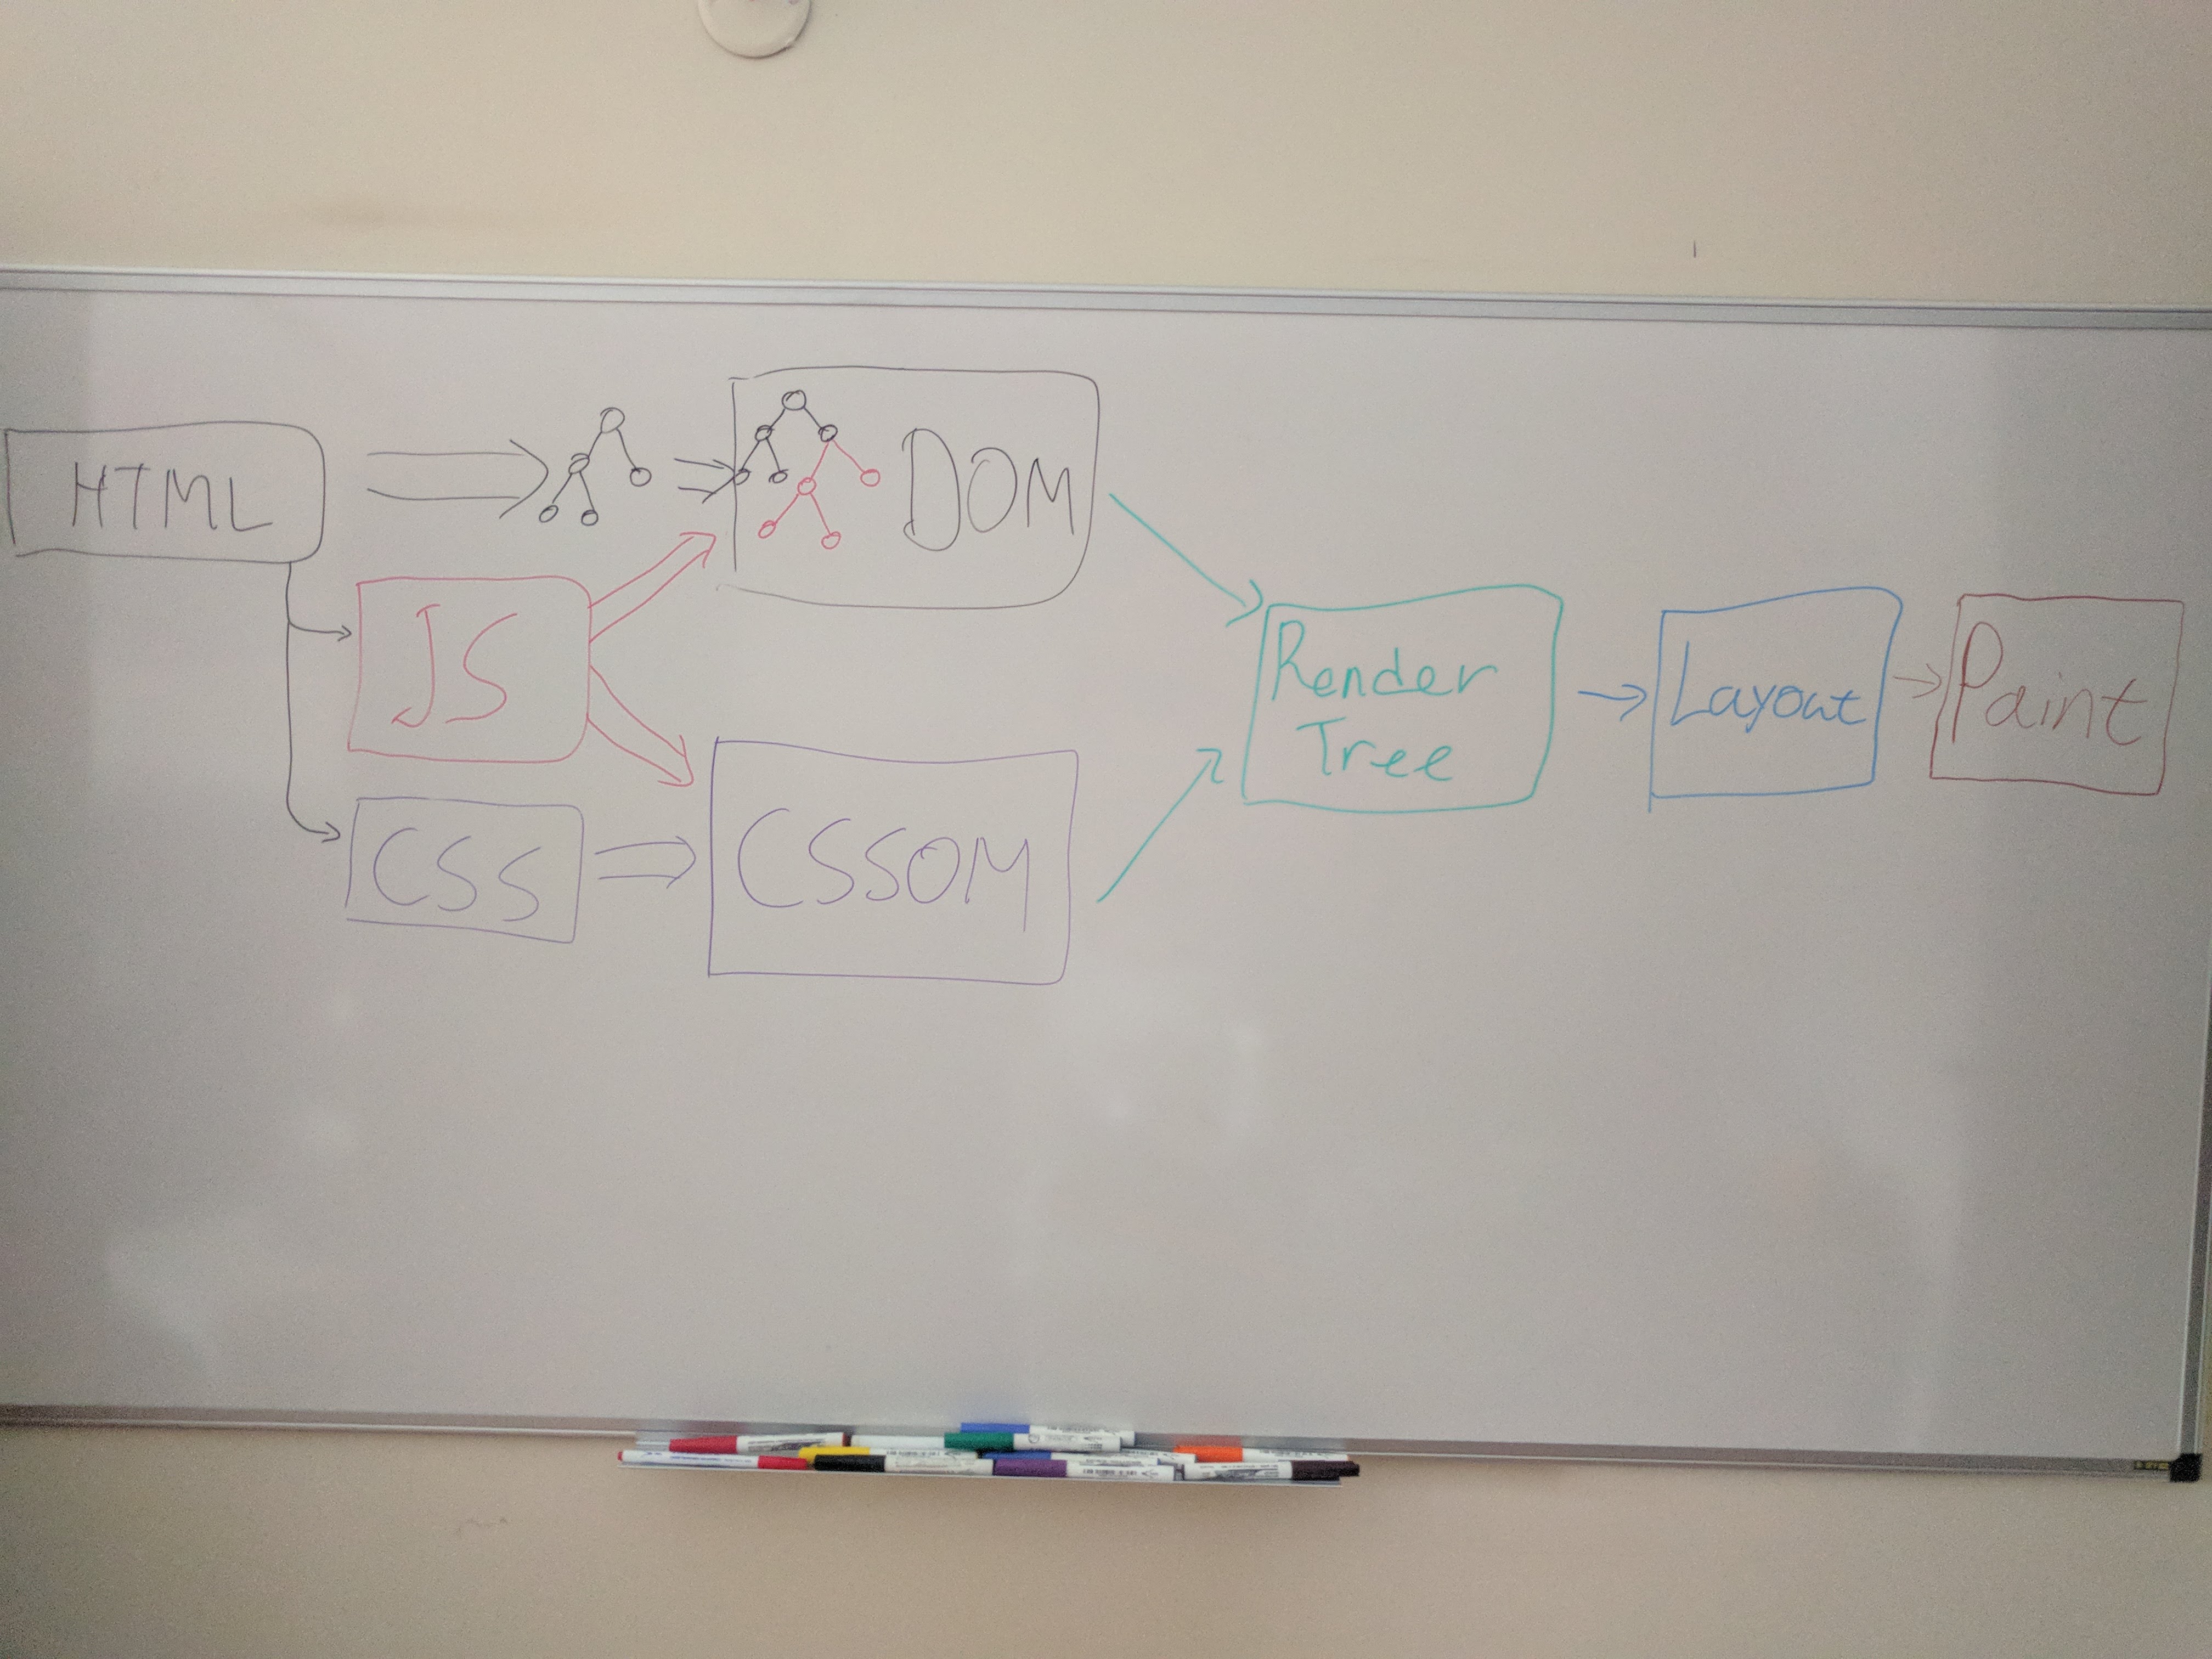 HTML
DOM
JS
CSS
CSSOM
Render
Tree
Layout
Paint